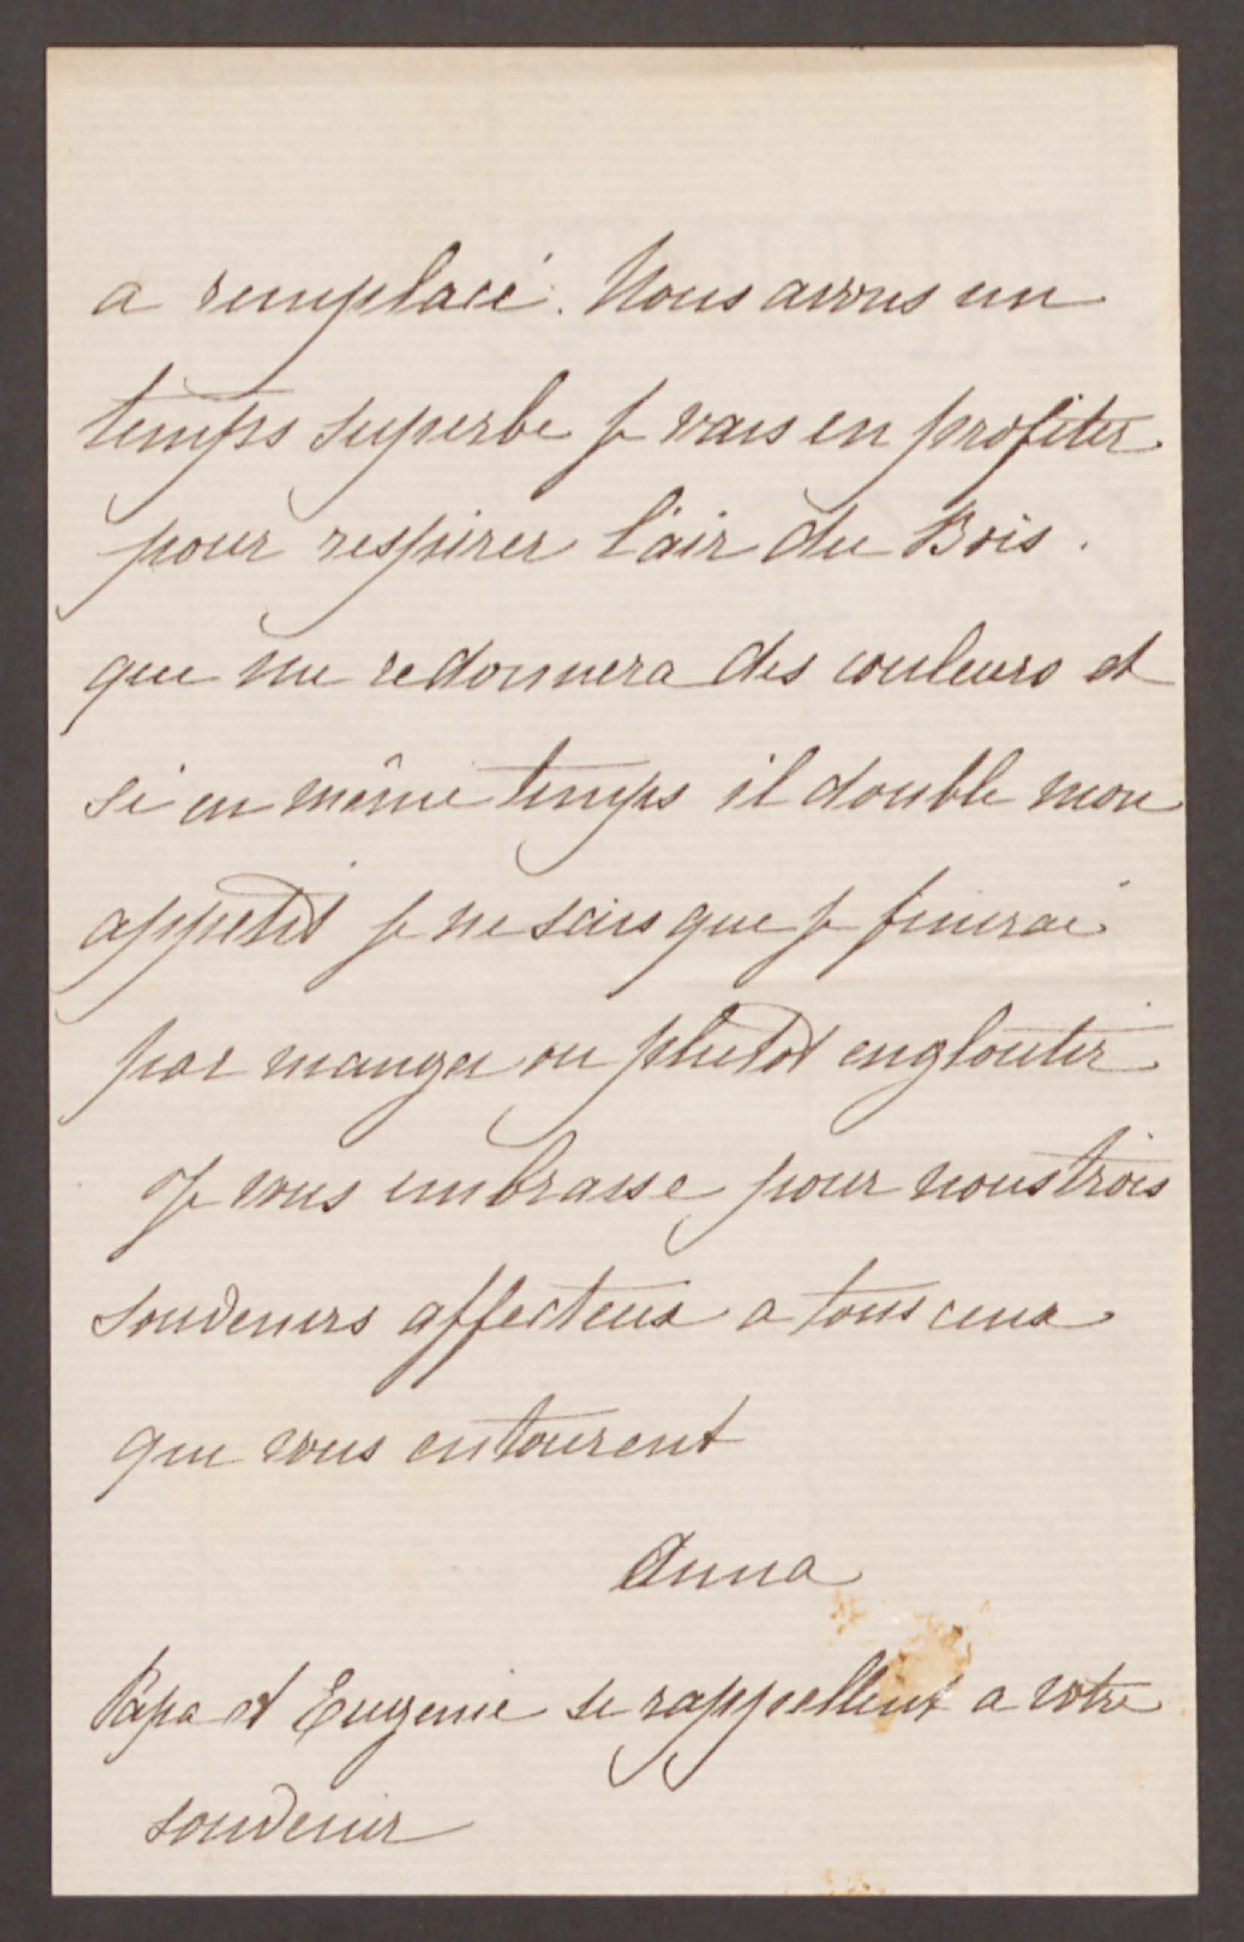 a remplacé. Nous avons un
temps superbe je vais en profiter
pour respirer l'air du Bois.
que me redonnera des couleurs et
si en même temps il double mon
appetit je ne sais que je finirai
par manger ou plutot engloutir
Je vous embrasse pour nous trois
souvenirs affecteux a tous ceux
que vous entourent
Anna
Papa et Eugenie se rappellent a votre
souvenir